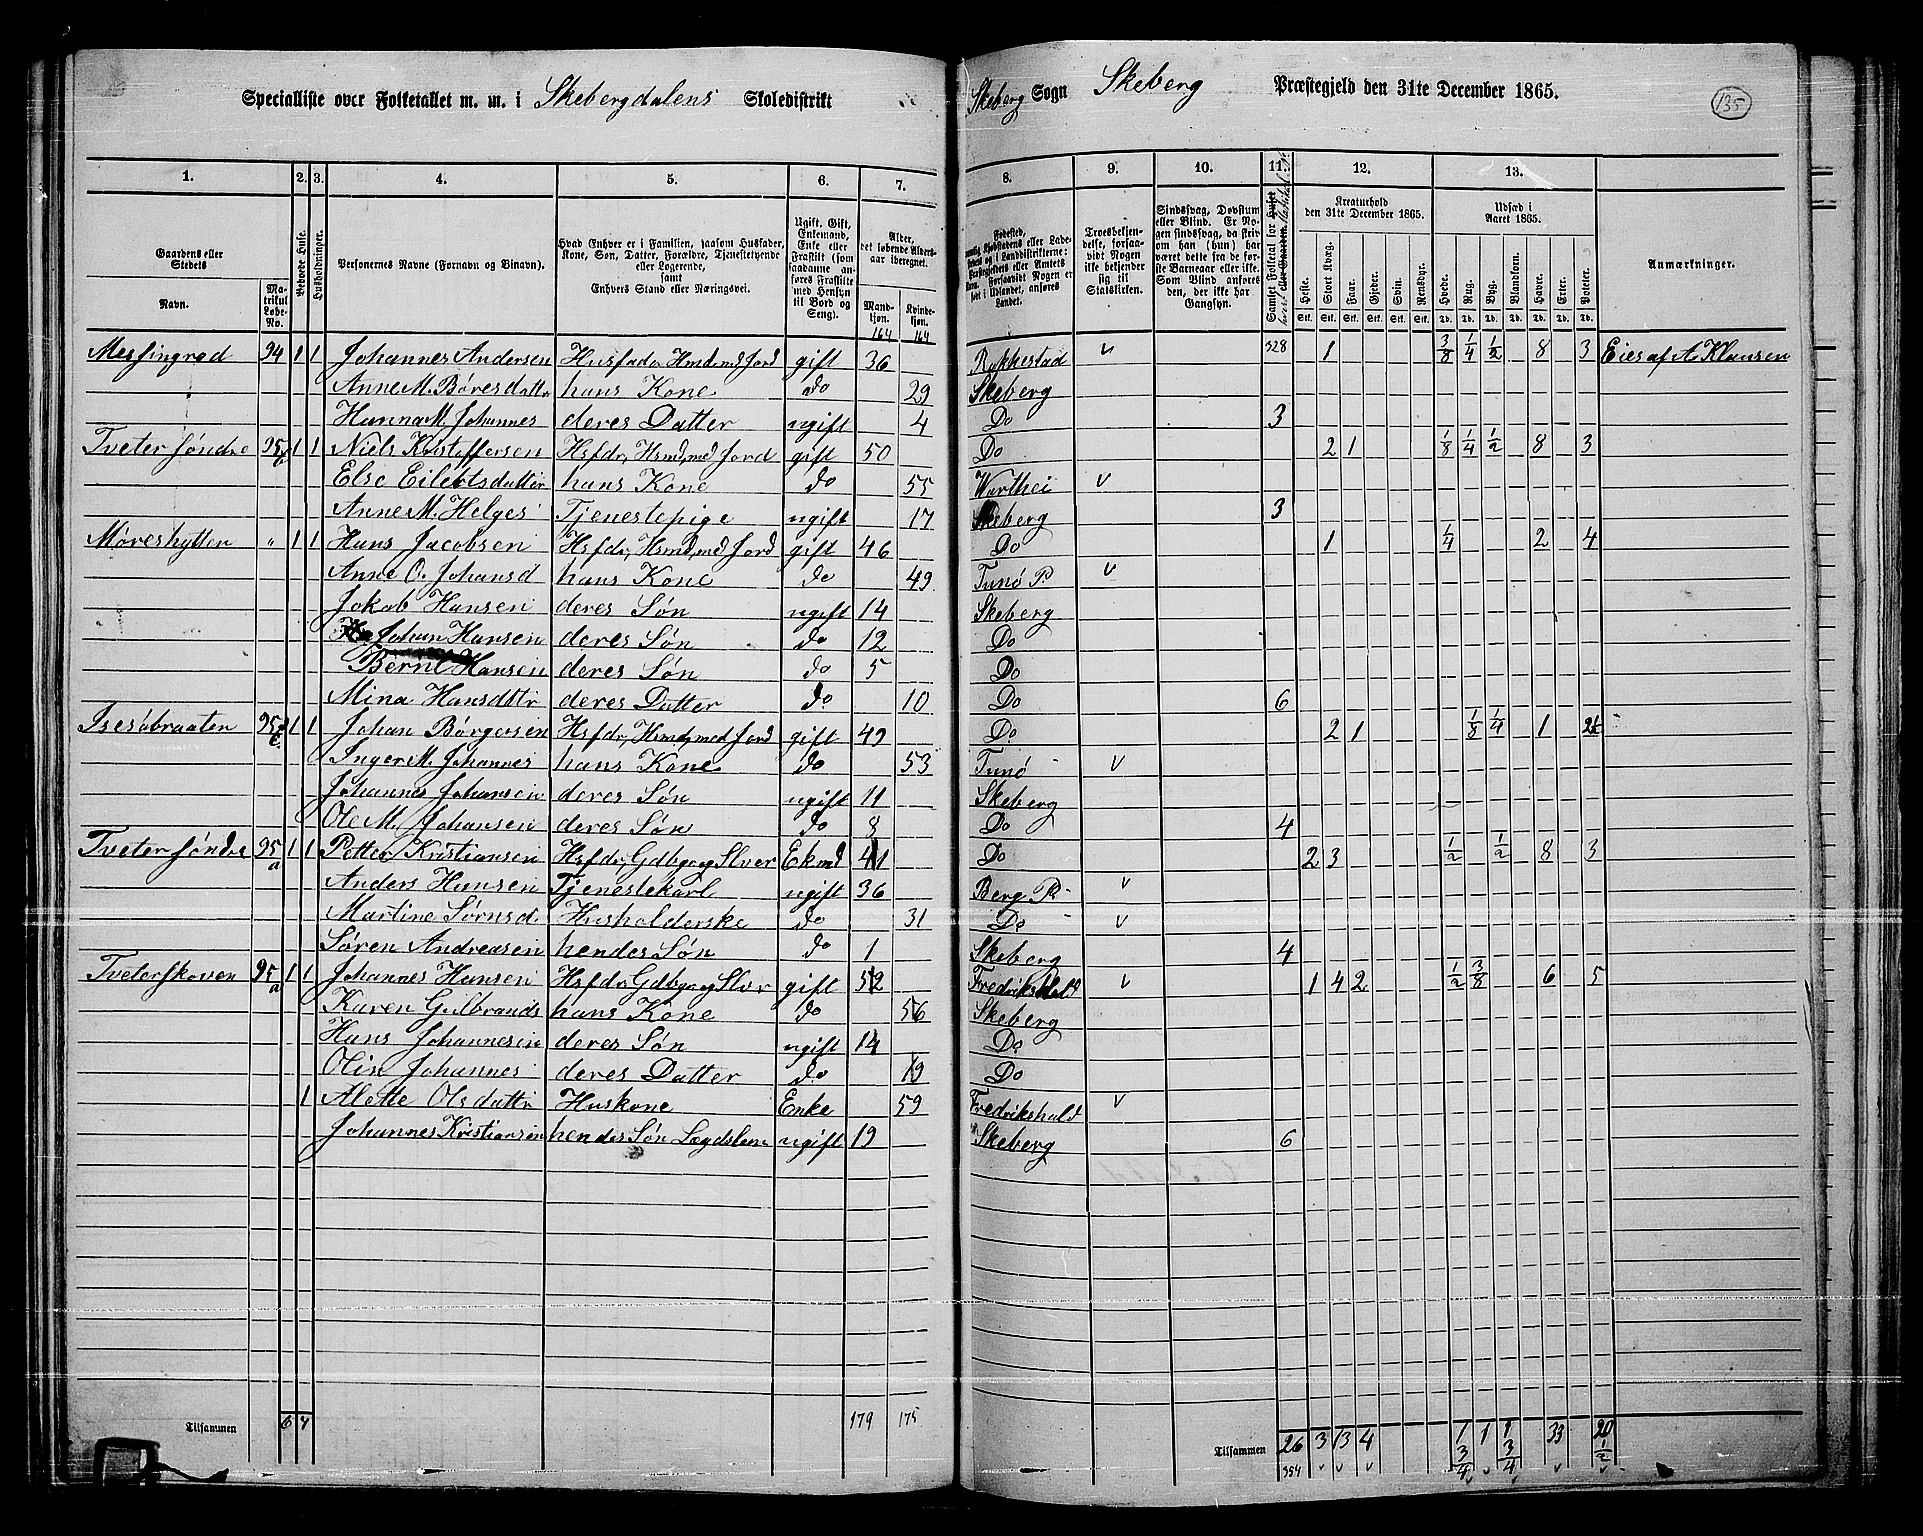 Specialliste over Folketallet m. m. i Skebergdalens Skoledistrikt
Skeberg Sogn Skeberg Præstegjeld den 31te December 1865. 135
1. 2. 3. 4. 5. 6. 7. 8. 9. 10. 11. 12. 13.
Gaardens eller Stedets Navn. Matrikul Løbe-No. Beboede Huse. Husholdninger. Personernes Navne (Fornavn og Binavn). Hvad Enhver er i Familien, saasom Husfader, Kone, Søn, Datter, Forældre, Tjenestetyende eller Logerende, samt Enhvers Stand eller Næringsvei. Ugift, Gift, Enkemand, Enke eller Fraskilt (som saadanne anføres Fraskilte med Hensyn til Bord og Seng). Alder, det løbende Alders-aar iberegnet. Mandkjøn. Kvindekjøn. 164 164
Fødested, Troesbekjendelse, forsaavidt Nogen ikke bekjender sig til Statskirken. Sindssvag, Døvstum eller Blind. Er Nogen sindssvag, da skriv om han (hun) har været dette fra de første Barneaar eller ikke. Som Blind anføres den, der ikke har Gangsyn. Kreaturhold den 31te December 1865. Heste. Stort Kvæg. Faar. Gjeder. Svin. Rensdyr. Udsæd i Aaret 1865. Hvede. Rug. Byg. Blandkorn. Havre. Erter. Poteter. Anmærkninger.
Messingrød 94 1 1 Johannes Andersen Husfadr Hmd md Jord gift 36 Rakkestad v 328 1 3/8 1/4 1/2 8 3 Eies af A Klausen
Anne M. Børesdattr hans Kone do 29 Skeberg
Hanna M. Johannes deres Datter ugift 4 Do 3
Tveter søndre 95b 1 1 Niels Kristoffersen Hsfdr, Hsmd, med Jord gift 50 Do 2 1 1/8 1/4 1/2 8 3
Else Eilertsdatter hans Kone do 55 v
Anne M. Helges Tjenestepige ugift 17 Skeberg 3
Møreshytten " 1 1 Hans Jacobsen Hsfdr, Hsmd, med Jord gift 46 Do 1 1/4 2 4
Anne O. Johansd hans Kone do 49 Tunø P. v
Jokab Hansen deres Søn ugift 14 Skeberg
Johan Hansen deres Søn do 12 Do
Bernt Hansen deres Søn do 5 Do
Mina Hansdttr deres Datter do 10 Do 6
Isesøbraaten 95c 1 1 Johan Børgersen Hsfdr, Hsmd, med Jord gift 49 Do 2 1 1/8 1/4 1 2½
Inger M. Johannes hans Kone do 53 Tunø v
Johannes Johansen deres Søn ugift 11 Skeberg
Ole M. Johansen deres Søn do 8 Do 4
Tveter søndre 95a 1 1 Petter Kristiansen Hsfdr, Gdbg og Slver Ekmd 41 Do 2 3 1/2 1/2 8 3
Anders Hansen Tjenestekarl ugift 36 Berg P. v
Martine Sørnsd. Husholderske do 31 Do v
Søren Andreasen hendes Søn do 1 Skeberg 4
Tveterskoven 95a 1 1 Johannes Hansen Hsfdr Gdbg og Slver gift 52 Fredrikshald v 1 4 2 1/2 3/8 6 5
Karen Gulbrands hans Kone do 56 Skeberg
Hans Johannesen deres Søn ugift 14 Do
Olin Johannes deres Datter do 19 Do
1 Alette Olsdattr Huskone Enke 59 Fredrikshald v
Johannes Kristiansen hendes Søn Lægdslem ugift 19 Skeberg 6
Tilsammen 6 7 179 175
Tilsammen 26 3 13 4 1 3/4 1 1 3/4 33 20 1/2
354 v v v v v v v v